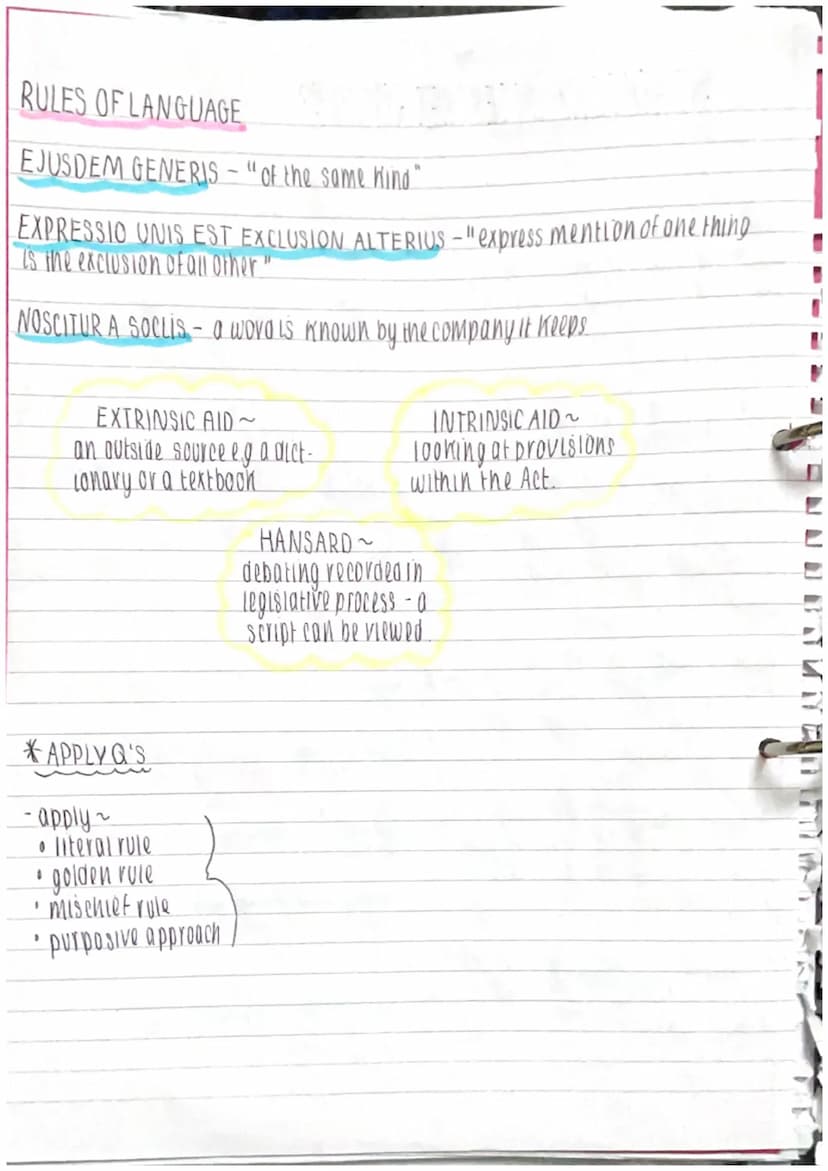 RULES OF LANGUAGE
EJUSDEM GENERIS - "of the same kind"
EXPRESSIO UNIS EST EXCLUSION ALTERIUS - "express mention of one thing
is the exclusion of all other"
NOSCITUR A SOCLIS - a word is known by the company it keeps
EXTRINSIC AID ~
an outside source eg a dict-
ionary or a textbook
INTRINSIC AID ~
looking at provisions
within the Act.
HANSARD ~
debating recorded in
legislative process - a
script can be viewed
* APPLY Q'S
- apply ~
• literal rule
• golden rule
• mischief rule
• purposive approach